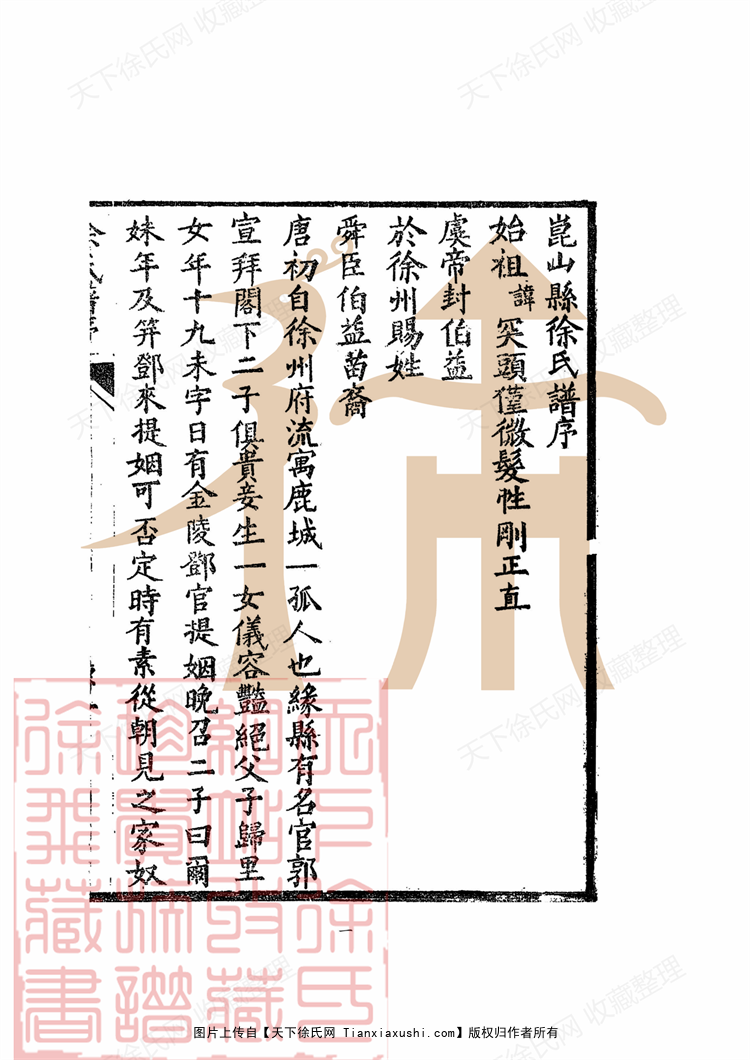 崑山縣徐氏譜序
始祖諱突頭僅微髮性剛正直
虞帝封伯益
於徐州賜姓
舜臣伯益苗裔
唐初自徐州府流寓鹿城一孤人也緣縣有名官郭
宣拜閣下二子俱貴妾生一女儀容豔絕父子歸里
女年十九未字日有金陵鄧官提姻晚召二子曰爾
妹年及笄鄧來提姻可否定時有素從朝見之家奴
一
天下徐氏网 收藏整理
图片上传自【天下徐氏网 Tianxiaxushi.com】版权归作者所有